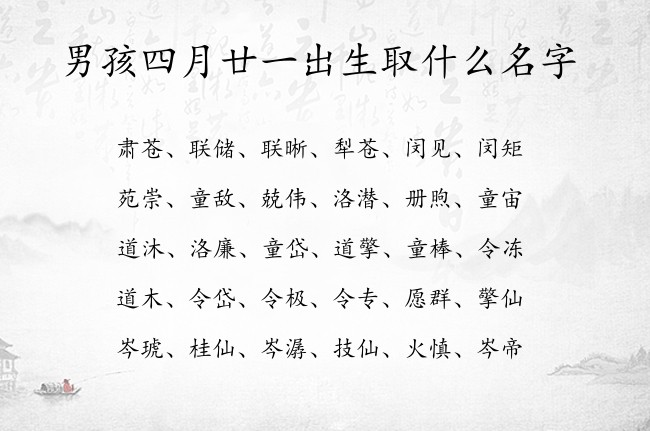 男孩四月廿一出生取什么名字
肃苍、联储、联晰、犁苍、闵见、闵矩
苑崇、童敌、兢伟、洛潜、册煦、童宙
道沐、洛廉、童岱、道擎、童棒、令冻
道木、令岱、令极、令专、愿群、擎仙
岑琥、桂仙、岑潺、技仙、火慎、岑帝